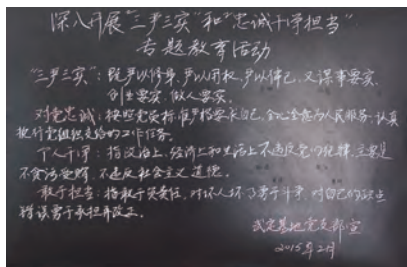 深入开展“三严三实”和“忠诚干净担当”
专题教育活动
“三严三实”：既严以修身，严以用权，严以律己，又谋事要实，
创业要实，做人要实。
对党忠诚：按照党员标准严格要求自己，全心全意为人民服务，认真
执行党组织交给的工作任务。
个人干净：指政治上，经济上和生活上不违反党的纪律，主要是
不贪污受贿，不违反社会主义道德。
敢于担当：指敢于负责任，对坏人坏了勇于斗争，对自己的缺点
错误勇于承担并改正。
武定基地党支部宣
2015年2月